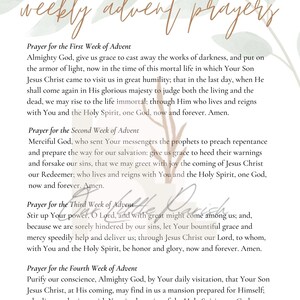 weekly advent prayers
Prayer for the First Week of Advent
Almighty God, give us grace to cast away the works of darkness, and put on
the armor of light, now in the time of this mortal life in which Your Son
Jesus Christ came to visit us in great humility; that in the last day, when He
shall come again in His glorious majesty to judge both the living and the
dead, we may rise to the life immortal; through Him who lives and reigns
with You and the Holy Spirit, one God, now and forever. Amen.
Prayer for the Second Week of Advent
Merciful God, who sent Your messengers the prophets to preach repentance
and prepare the way for our salvation: give us grace to heed their warnings
and forsake our sins, that we may greet with joy the coming of Jesus Christ
our Redeemer; who lives and reigns with You and the Holy Spirit, one God,
now and forever. Amen.
Prayer for the Third Week of Advent
Stir up Your power, O Lord, and with great might come among us; and,
because we are sorely hindered by our sins, let Your bountiful grace and
mercy speedily help and deliver us; through Jesus Christ our Lord, to whom,
with You and the Holy Spirit, be honor and glory, now and forever. Amen.
Prayer for the Fourth Week of Advent
Purify our conscience, Almighty God, by Your daily visitation, that Your Son
Jesus Christ, at His coming, may find in us a mansion prepared for Himself;